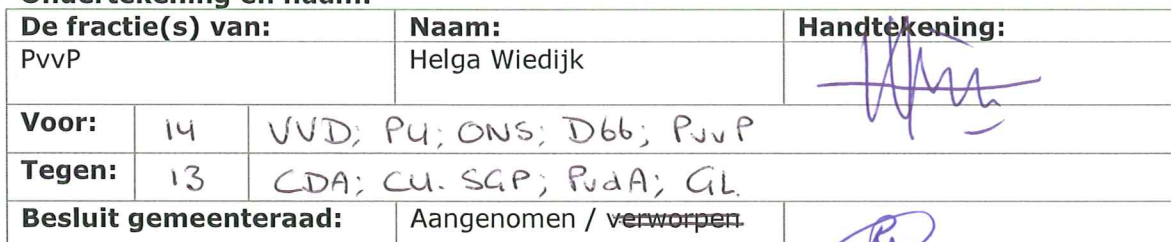 De fractie(s) van: Naam: Handtekening:
PvvP Helga Wiedijk
Voor: 14 VVD; PU; ONS; D66; PvvP
Tegen: 13 CDA; CU. SGP; PvdA; GL.
Besluit gemeenteraad: Aangenomen / verworpen